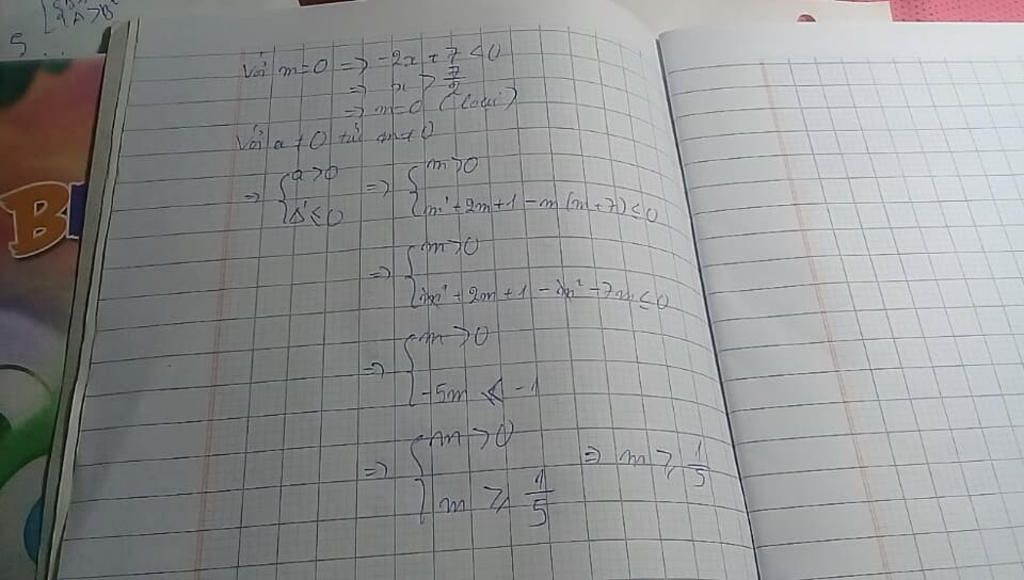 {A > B²
5 ...
Với m=0 => -2x + 7 < 0
=> x > 7/2
=> m=0 (loại)
Với a ≠ 0 m ≠ 0
=> { a > 0 => { m > 0
{ Δ' ≤ 0 { m² + 2m + 1 - m(m+7) ≤ 0
=> { m > 0
{ m² + 2m + 1 - m² - 7m ≤ 0
=> { m > 0
{ -5m ≤ -1
=> { m > 0 => m ≥ 1/5
{ m ≥ 1/5
B